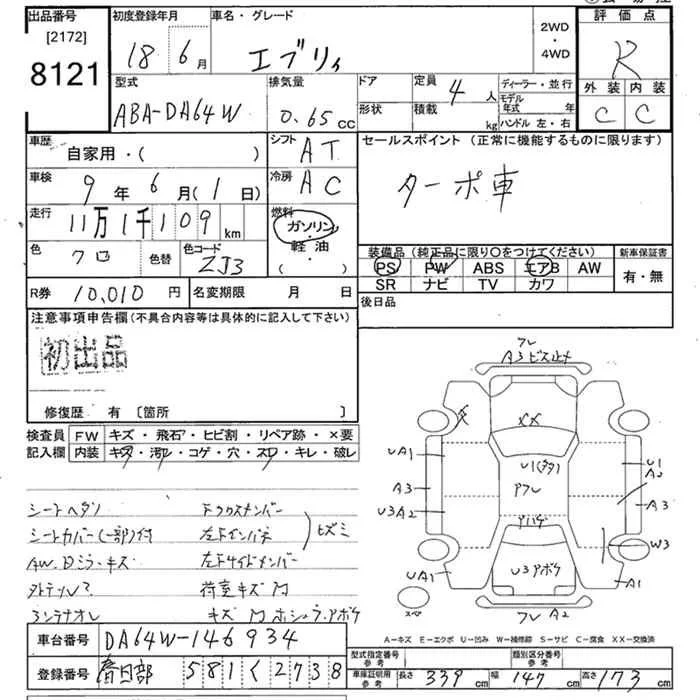 出品番号 [2172] 8121
初度登録年月 18年 6月
車名・グレード エブリィ
2WD・4WD
評価点 R
外装 内装
C C
型式 ABA-DA64W
排気量 0.65 CC
ドア 形状
定員 4人
積載 kg
ディーラー・並行
モデル年式 年
ハンドル 左・右
車歴 自家用・( )
シフト AT
セールスポイント (正常に機能するものに限ります)
ターボ車
車検 9年 6月 (1日)
冷房 AC
走行 11万1千109 km
燃料 ガソリン・軽油・( )
色 クロ 色替 色コード ZJ3
装備品 (純正品に限り〇をつけてください)
PS PW ABS エアB AW
SR ナビ TV カワ
新車保証書 有・無
R券 10,010円 名変期限 月 日
後日品
注意事項申告欄 (不具合内容等は具体的に記入して下さい)
初出品
修復歴 有 〔箇所 〕
検査員記入欄
FW キズ・飛石・ヒビ割・リペア跡・×要
内装 キズ・汚レ・コゲ・穴・スレ・キレ・破レ
シートヘタリ
シートカバー(一部)付
AW. Dミラーキズ
荷室キズ
左ドインパネ
左ドサイドメンバー
フレ
A3 ビス止メ
XX
UA1
U1
A2
A3
アフレ
A3
U3A2
アハゲ
W3
UA1
U3アホケ
A1
スペア
フレ A2
A-キズ E-エクボ U-凹み W-補修跡 S-サビ C-腐食 XX-交換済
車台番号 DA64W-146934
登録番号 春日部 581く2738
型式指定番号 参考
類別区分番号 参考
車庫証明用 参考 長さ 339cm 幅 147cm 高さ 173cm